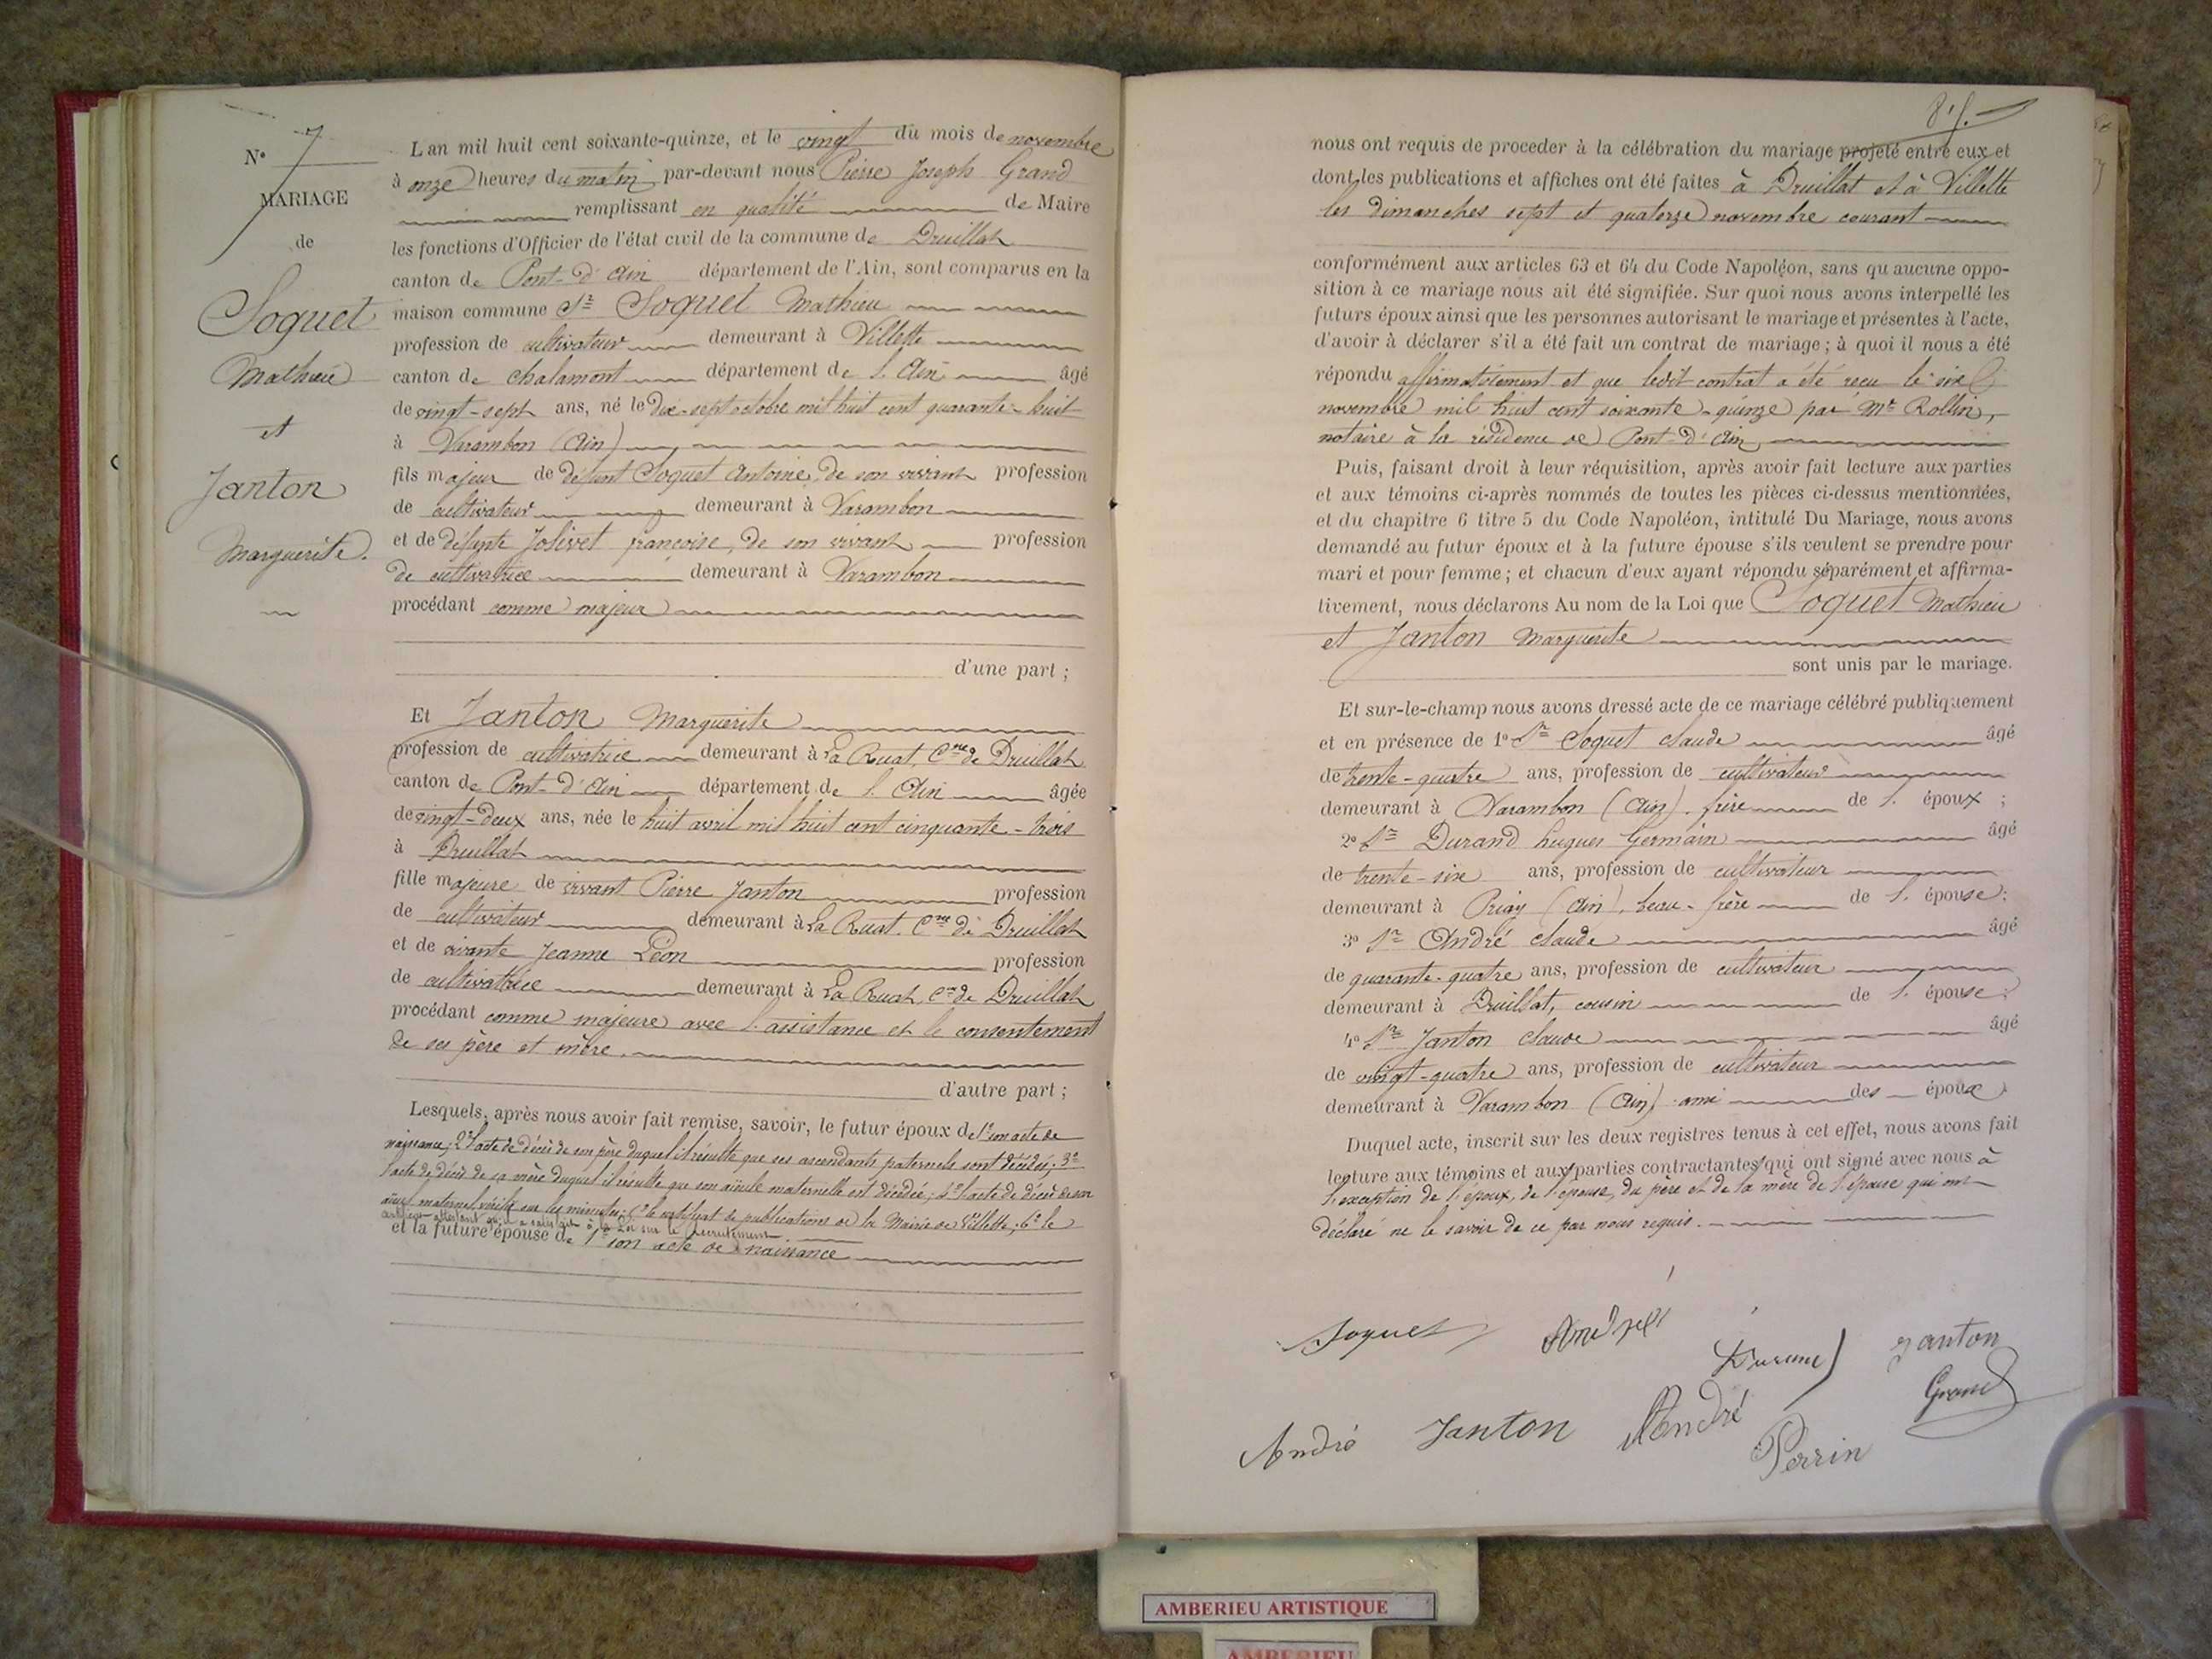 N° 7
MARIAGE
de
Soquet
Mathieu
et
Janton
Marguerite.
L'an mil huit cent soixante-quinze, et le vingt du mois de novembre
à onze heures du matin par-devant nous Pierre Joseph Grand
remplissant en qualité de Maire
les fonctions d'Officier de l'état civil de la commune de Druillat
canton de Pont-d'Ain département de l'Ain, sont comparus en la
maison commune Sr Soquet Mathieu
profession de cultivateur demeurant à Villette
canton de chalamont département de l'Ain âgé
de vingt-sept ans, né le Dix-sept octobre mil huit cent quarante-huit
à Varambon (Ain)
fils majeur de défunt Soquet Antoine, de son vivant profession
de cultivateur demeurant à Varambon
et de défunte Jolivet françoise, de son vivant profession
de cultivatrice demeurant à Varambon
procédant comme majeur
d'une part ;
Et Janton Marguerite
profession de cultivatrice demeurant à La Ruat, Cne de Druillat
canton de Pont-d'Ain département de l'Ain âgée
de vingt-deux ans, née le huit avril mil huit cent cinquante-trois
à Druillat
fille majeure de vivant Pierre Janton profession
de cultivateur demeurant à La Ruat. Cne de Druillat
et de vivante Jeanne Léon profession
de cultivatrice demeurant à La Ruat, Cne de Druillat
procédant comme majeure avec l'assistance et le consentement
de ses père et mère.
d'autre part ;
Lesquels, après nous avoir fait remise, savoir, le futur époux de 1° son acte de
naissance; 2° l'acte de décès de son père duquel il résulte que ses ascendants paternels sont décédés; 3°
l'acte de décès de sa mère duquel il résulte que son aïeule maternelle est décédée; 4° l'acte de décès de son
aïeul maternel vérifié sur les minutes; 5° le certificat de publications de la Mairie de Villette; 6° le
certificat attestant qu'il a satisfait à la Loi sur le recrutement
et la future épouse de 1° son acte de naissance
85.
nous ont requis de proceder à la célébration du mariage projeté entre eux et
dont les publications et affiches ont été faites à Druillat et à Villette
les dimanches sept et quatorze novembre courant
conformément aux articles 63 et 64 du Code Napoléon, sans qu'aucune oppo-
sition à ce mariage nous ait été signifiée. Sur quoi nous avons interpellé les
futurs époux ainsi que les personnes autorisant le mariage et présentes à l'acte,
d'avoir à déclarer s'il a été fait un contrat de mariage ; à quoi il nous a été
répondu affirmativement et que ledit contrat a été reçu le six
novembre mil huit cent soixante-quinze par Me Rollin,
notaire à la résidence de Pont-d'Ain
Puis, faisant droit à leur réquisition, après avoir fait lecture aux parties
et aux témoins ci-après nommés de toutes les pièces ci-dessus mentionnées,
et du chapitre 6 titre 5 du Code Napoléon, intitulé Du Mariage, nous avons
demandé au futur époux et à la future épouse s'ils veulent se prendre pour
mari et pour femme ; et chacun d'eux ayant répondu séparément et affirma-
tivement, nous déclarons Au nom de la Loi que Soquet Mathieu
et Janton Marguerite
sont unis par le mariage.
Et sur-le-champ nous avons dressé acte de ce mariage célébré publiquement
et en présence de 1° Sr Soquet Claude âgé
de trente-quatre ans, profession de cultivateur
demeurant à Varambon (Ain). frère de l'époux ;
2° Sr Durand hugues Germain âgé
de trente-six ans, profession de cultivateur
demeurant à Priay (Ain), beau-frère de l'épouse;
3° Sr André claude âgé
de quarante-quatre ans, profession de cultivateur
demeurant à Druillat, cousin de l'épouse;
4° Sr Janton Claude âgé
de vingt-quatre ans, profession de cultivateur
demeurant à Varambon (Ain) ami des époux
Duquel acte, inscrit sur les deux registres tenus à cet effet, nous avons fait
lecture aux témoins et aux parties contractantes qui ont signé avec nous à
l'exception de l'époux, de l'épouse, du père et de la mère de l'épouse qui ont
déclaré ne le savoir de ce par nous requis.
Soquet André Durand Janton
Grand
André Janton André
Perrin
AMBERIEU ARTISTIQUE
AMBERIEU